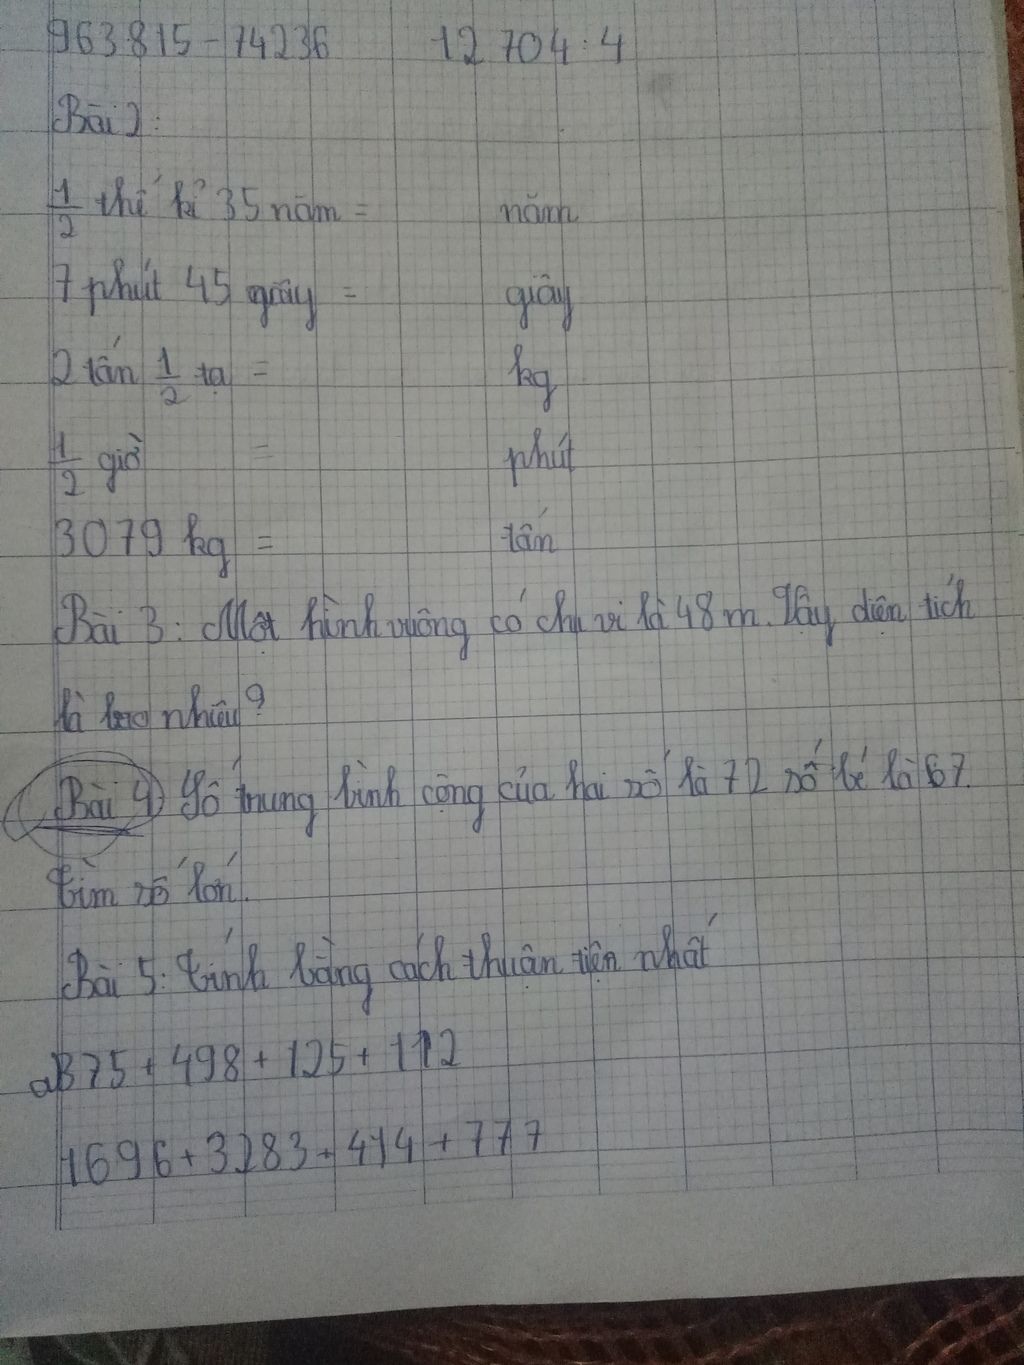 963815 - 74236 12 704 : 4
Bài 2:
1/2 thế kỉ 35 năm = năm
7 phút 45 giây = giây
2 tấn 1/2 tạ = kg
1/2 giờ = phút
3079 kg = tấn
Bài 3: Một hình vuông có chu vi là 48 m. Vậy diện tích
là bao nhiêu?
Bài 4) Số trung bình cộng của hai số là 72 số bé là 67.
Tìm số lớn.
Bài 5: Tính bằng cách thuận tiện nhất
a) 375 + 498 + 125 + 112
1696 + 3283 + 414 + 777